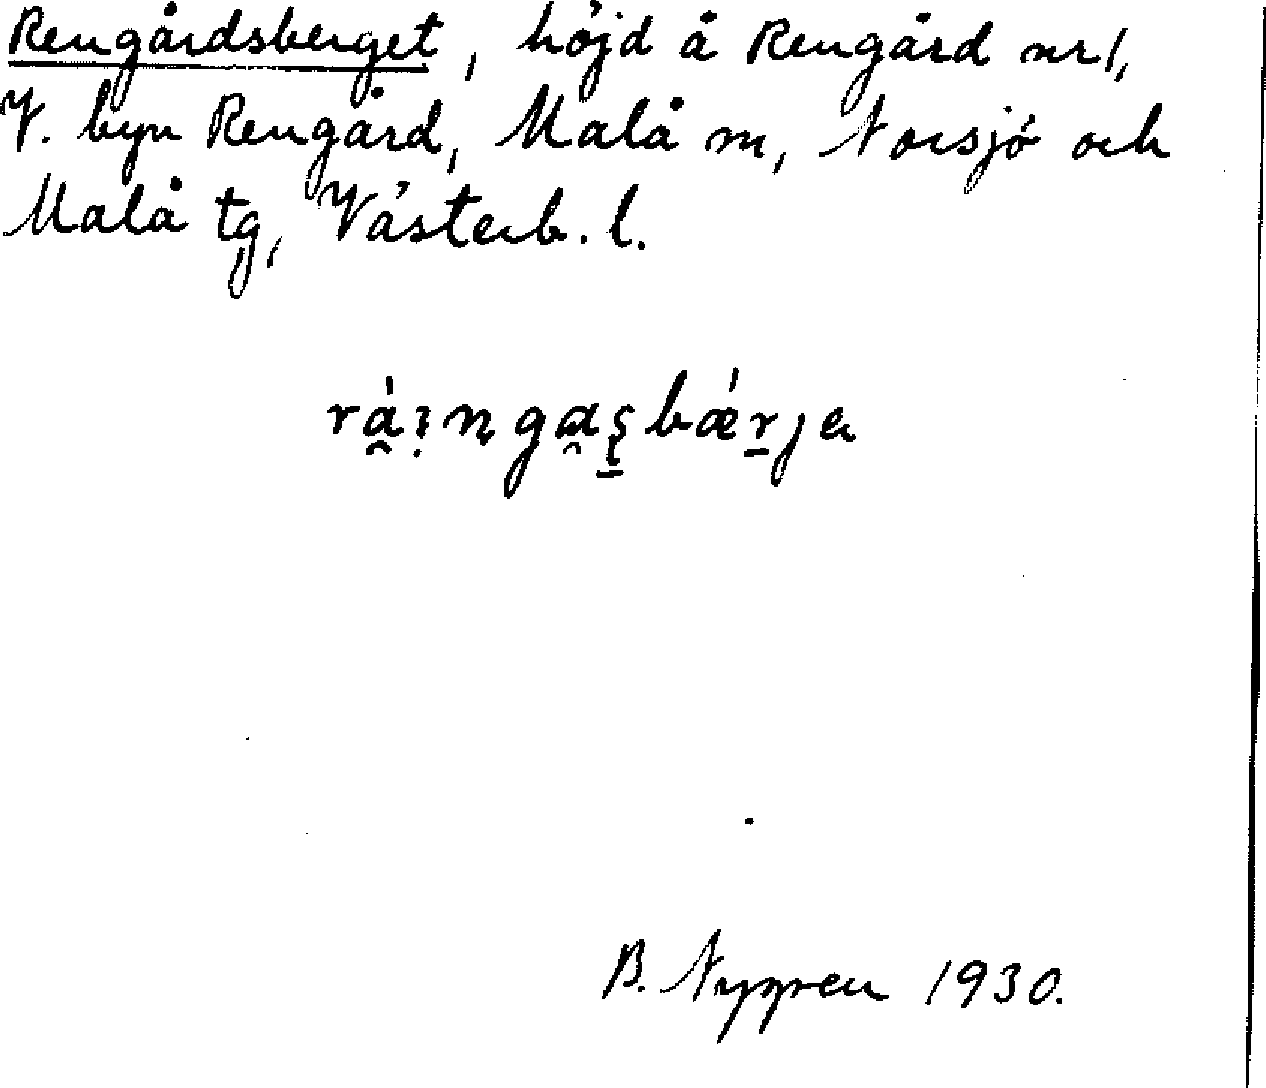 Rengårdsberget, höjd å Rengård nr 1,
V. byn Rengård, Malå m, Norsjö och
Malå tg, Västerb. l.
rá̯ın̥ga̯s̠bǽr̠ja
B. Nygren 1930.